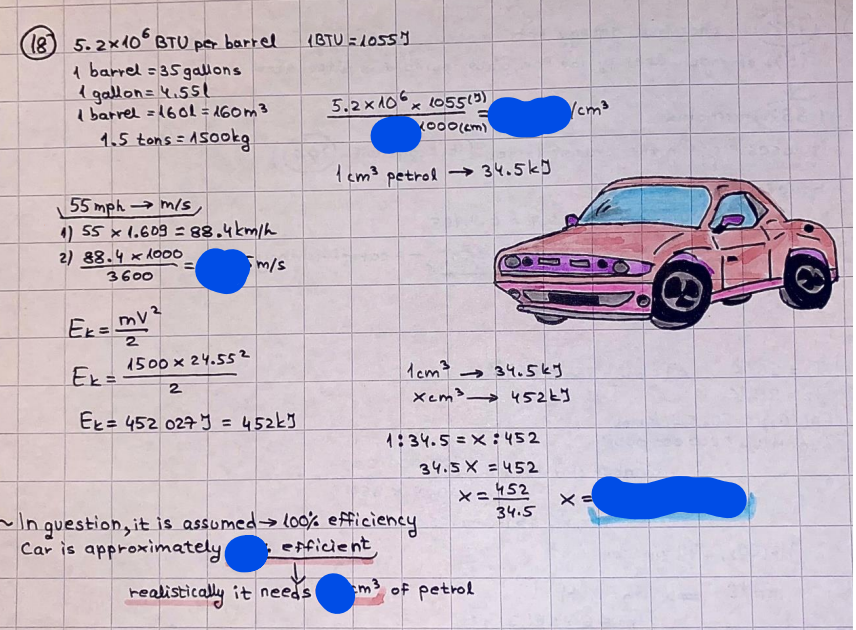 18 5.2×10⁶ BTU per barrel 1BTU = 1055J
1 barrel = 35 gallons
1 gallon = 4.55l
1 barrel = 160l = 160m³
1.5 tons = 1500kg
5.2×10⁶ × 1055(J)
1000(cm)
= /cm³
1cm³ petrol → 34.5kJ
55mph → m/s
1) 55 × 1.609 = 88.4km/h
2) 88.4 × 1000
3600
= m/s
Ek = mV²
2
Ek = 1500 × 24.55²
2
Ek = 452 027J = 452kJ
1cm³ → 34.5kJ
xcm³ → 452kJ
1:34.5 = x:452
34.5x = 452
x = 452
34.5
x =
~ In question, it is assumed → 100% efficiency
Car is approximately efficient
↓
realistically it needs cm³ of petrol